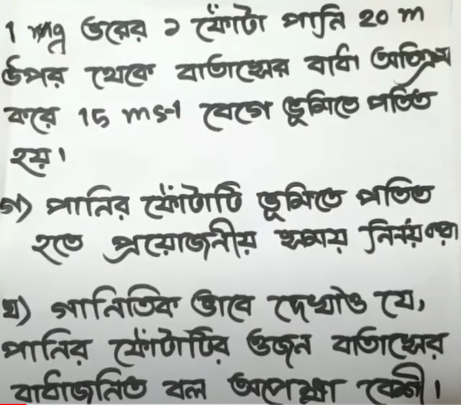 1 mg ভরের ১ ফোঁটা পানি 20 m
উপর থেকে বাতাসের বাধা অতিক্রম
করে 15 ms-1 বেগে ভূমিতে পতিত
হয়।
গ) পানির ফোঁটাটি ভূমিতে পতিত
হতে প্রয়োজনীয় সময় নির্ণয় কর।
ঘ) গানিতিক ভাবে দেখাও যে,
পানির ফোঁটাটির ওজন বাতাসের
বাধাজনিত বল অপেক্ষা বেশী।